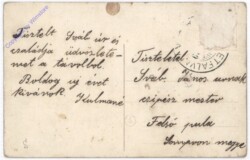 Tisztelt Sváb úr és
családja üdvözlete-
met a távolból
Boldog uj évet
kivánok Kulmane
Tisztelt
Sváb János urnak
cipész mester
Felső pula
Sopron megye